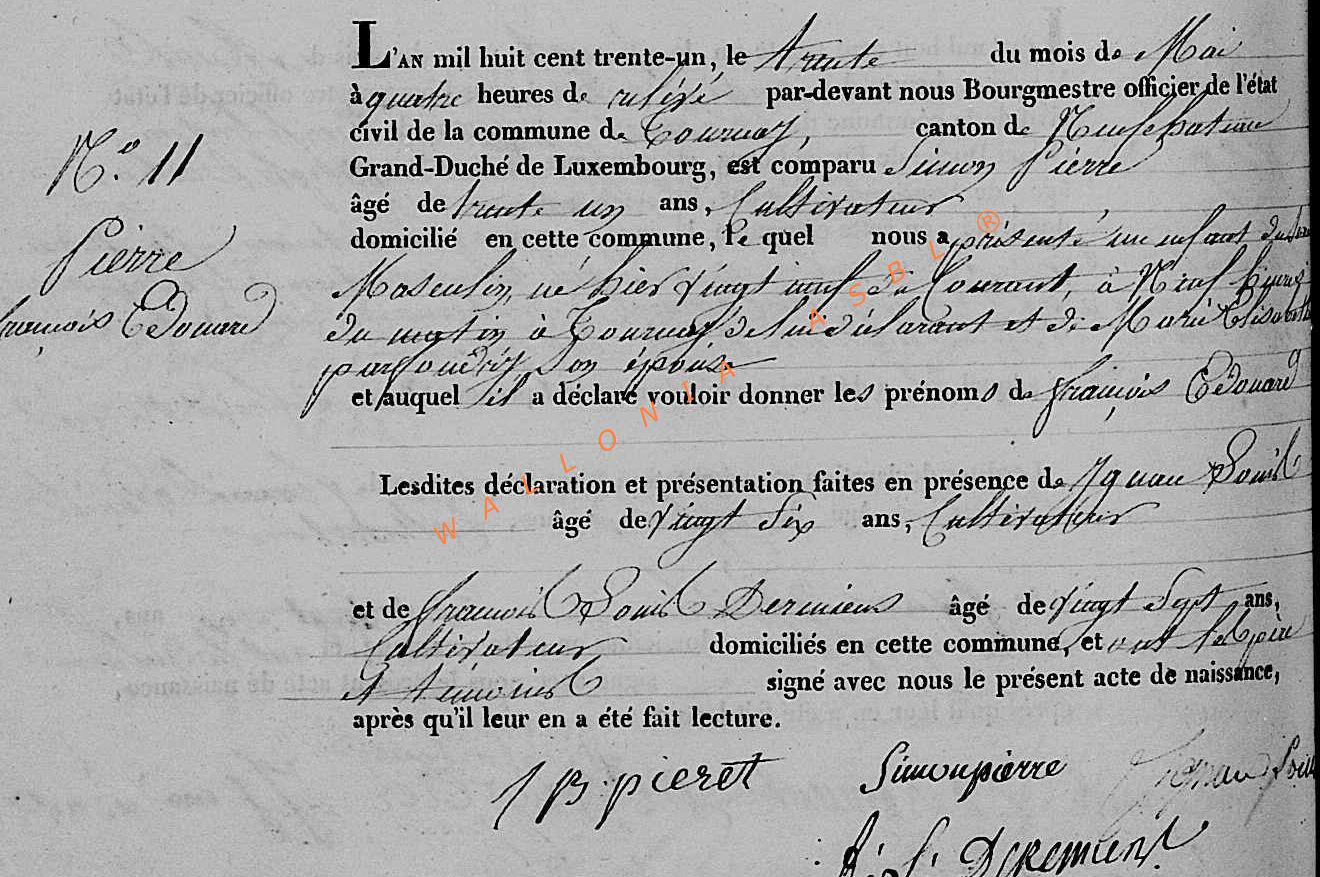 L'AN mil huit cent trente-un, le trente du mois de Mai
à quatre heures de relevé par-devant nous Bourgmestre officier de l'état
civil de la commune de Tournay, canton de Neufchateau
Grand-Duché de Luxembourg, est comparu Simon Pierre
âgé de trente un ans, Cultivateur
domicilié en cette commune, le quel nous a présenté un enfant du
Masculin, né hier vingt neuf du Courant, à Neuf heures
du matin à Tournay de lui déclarant et de Marie Elisabeth
son épouse
et auquel il a déclaré vouloir donner les prénoms de françois Edouard
Lesdites déclaration et présentation faites en présence de Louis
âgé de vingt Six ans, Cultivateur
et de françois Louis âgé de vingt Sept ans,
Cultivateur domiciliés en cette commune, et ont le père
et témoins signé avec nous le présent acte de naissance,
après qu'il leur en a été fait lecture.
N.o 11
Pierre
françois Edouard
J B pieret Simonpierre
WALLONIA ASBL ®